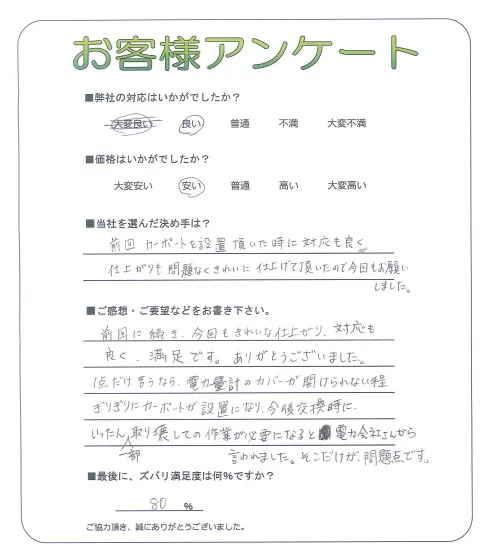 お客様アンケート
■弊社の対応はいかがでしたか?
大変良い 良い 普通 不満 大変不満
■価格はいかがでしたか?
大変安い 安い 普通 高い 大変高い
■当社を選んだ決め手は?
前回 カーポートを設置頂いた時に対応も良く
仕上がりも問題なくきれいに仕上げて頂いたので今回もお願い
しました。
■ご感想・ご要望などをお書き下さい。
前回に続き、今回もきれいな仕上がり、対応も
良く、満足です。ありがとうございました。
1点だけ言うなら、電力量計のカバーが開けられない程
ぎりぎりにカーポートが設置になり、今後交換時に、
いったん一部取り壊しての作業が必要になると電力会社さんから
言われました。そこだけが、問題点です。
■最後に、ズバリ満足度は何%ですか?
80 %
ご協力頂き、誠にありがとうございました。